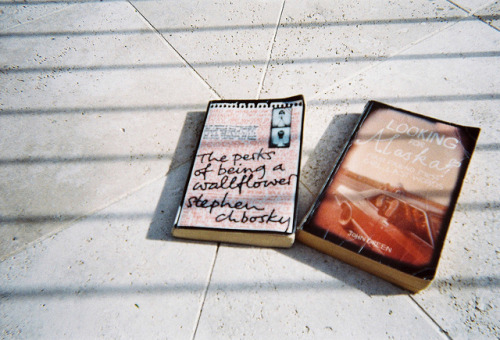 The perks
of being a
wallflower
stephen
chbosky
LOOKING
for
Alaska
JOHN GREEN